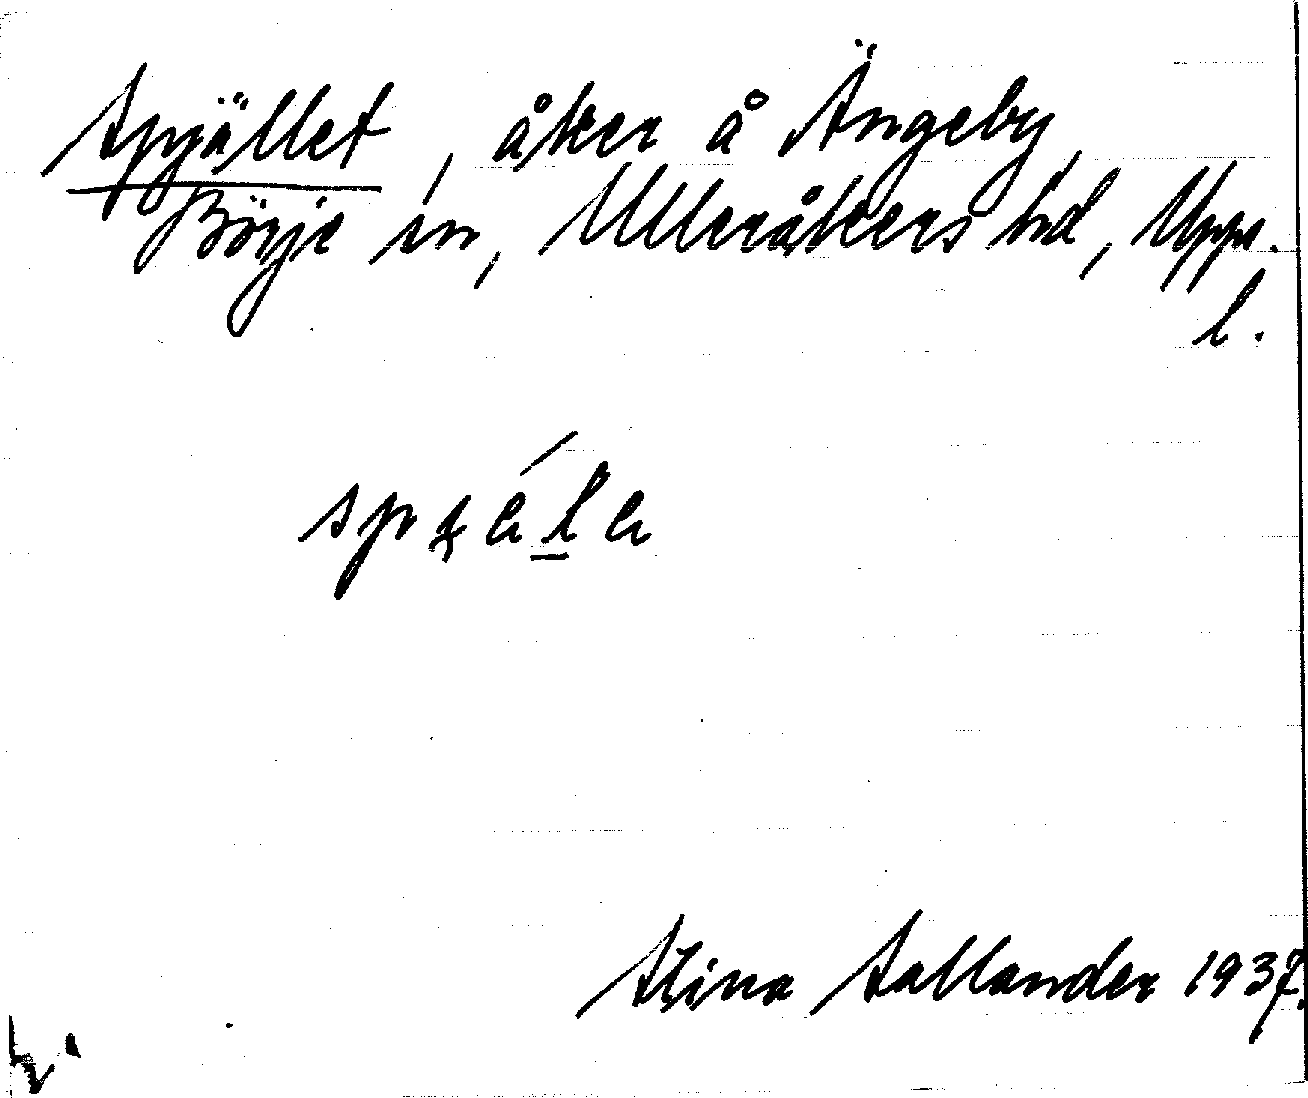 Spjället, åker å Ängeby,
Börje sn, Ulleråkers hd, Upps.
l.
Stina Sallander 1937.